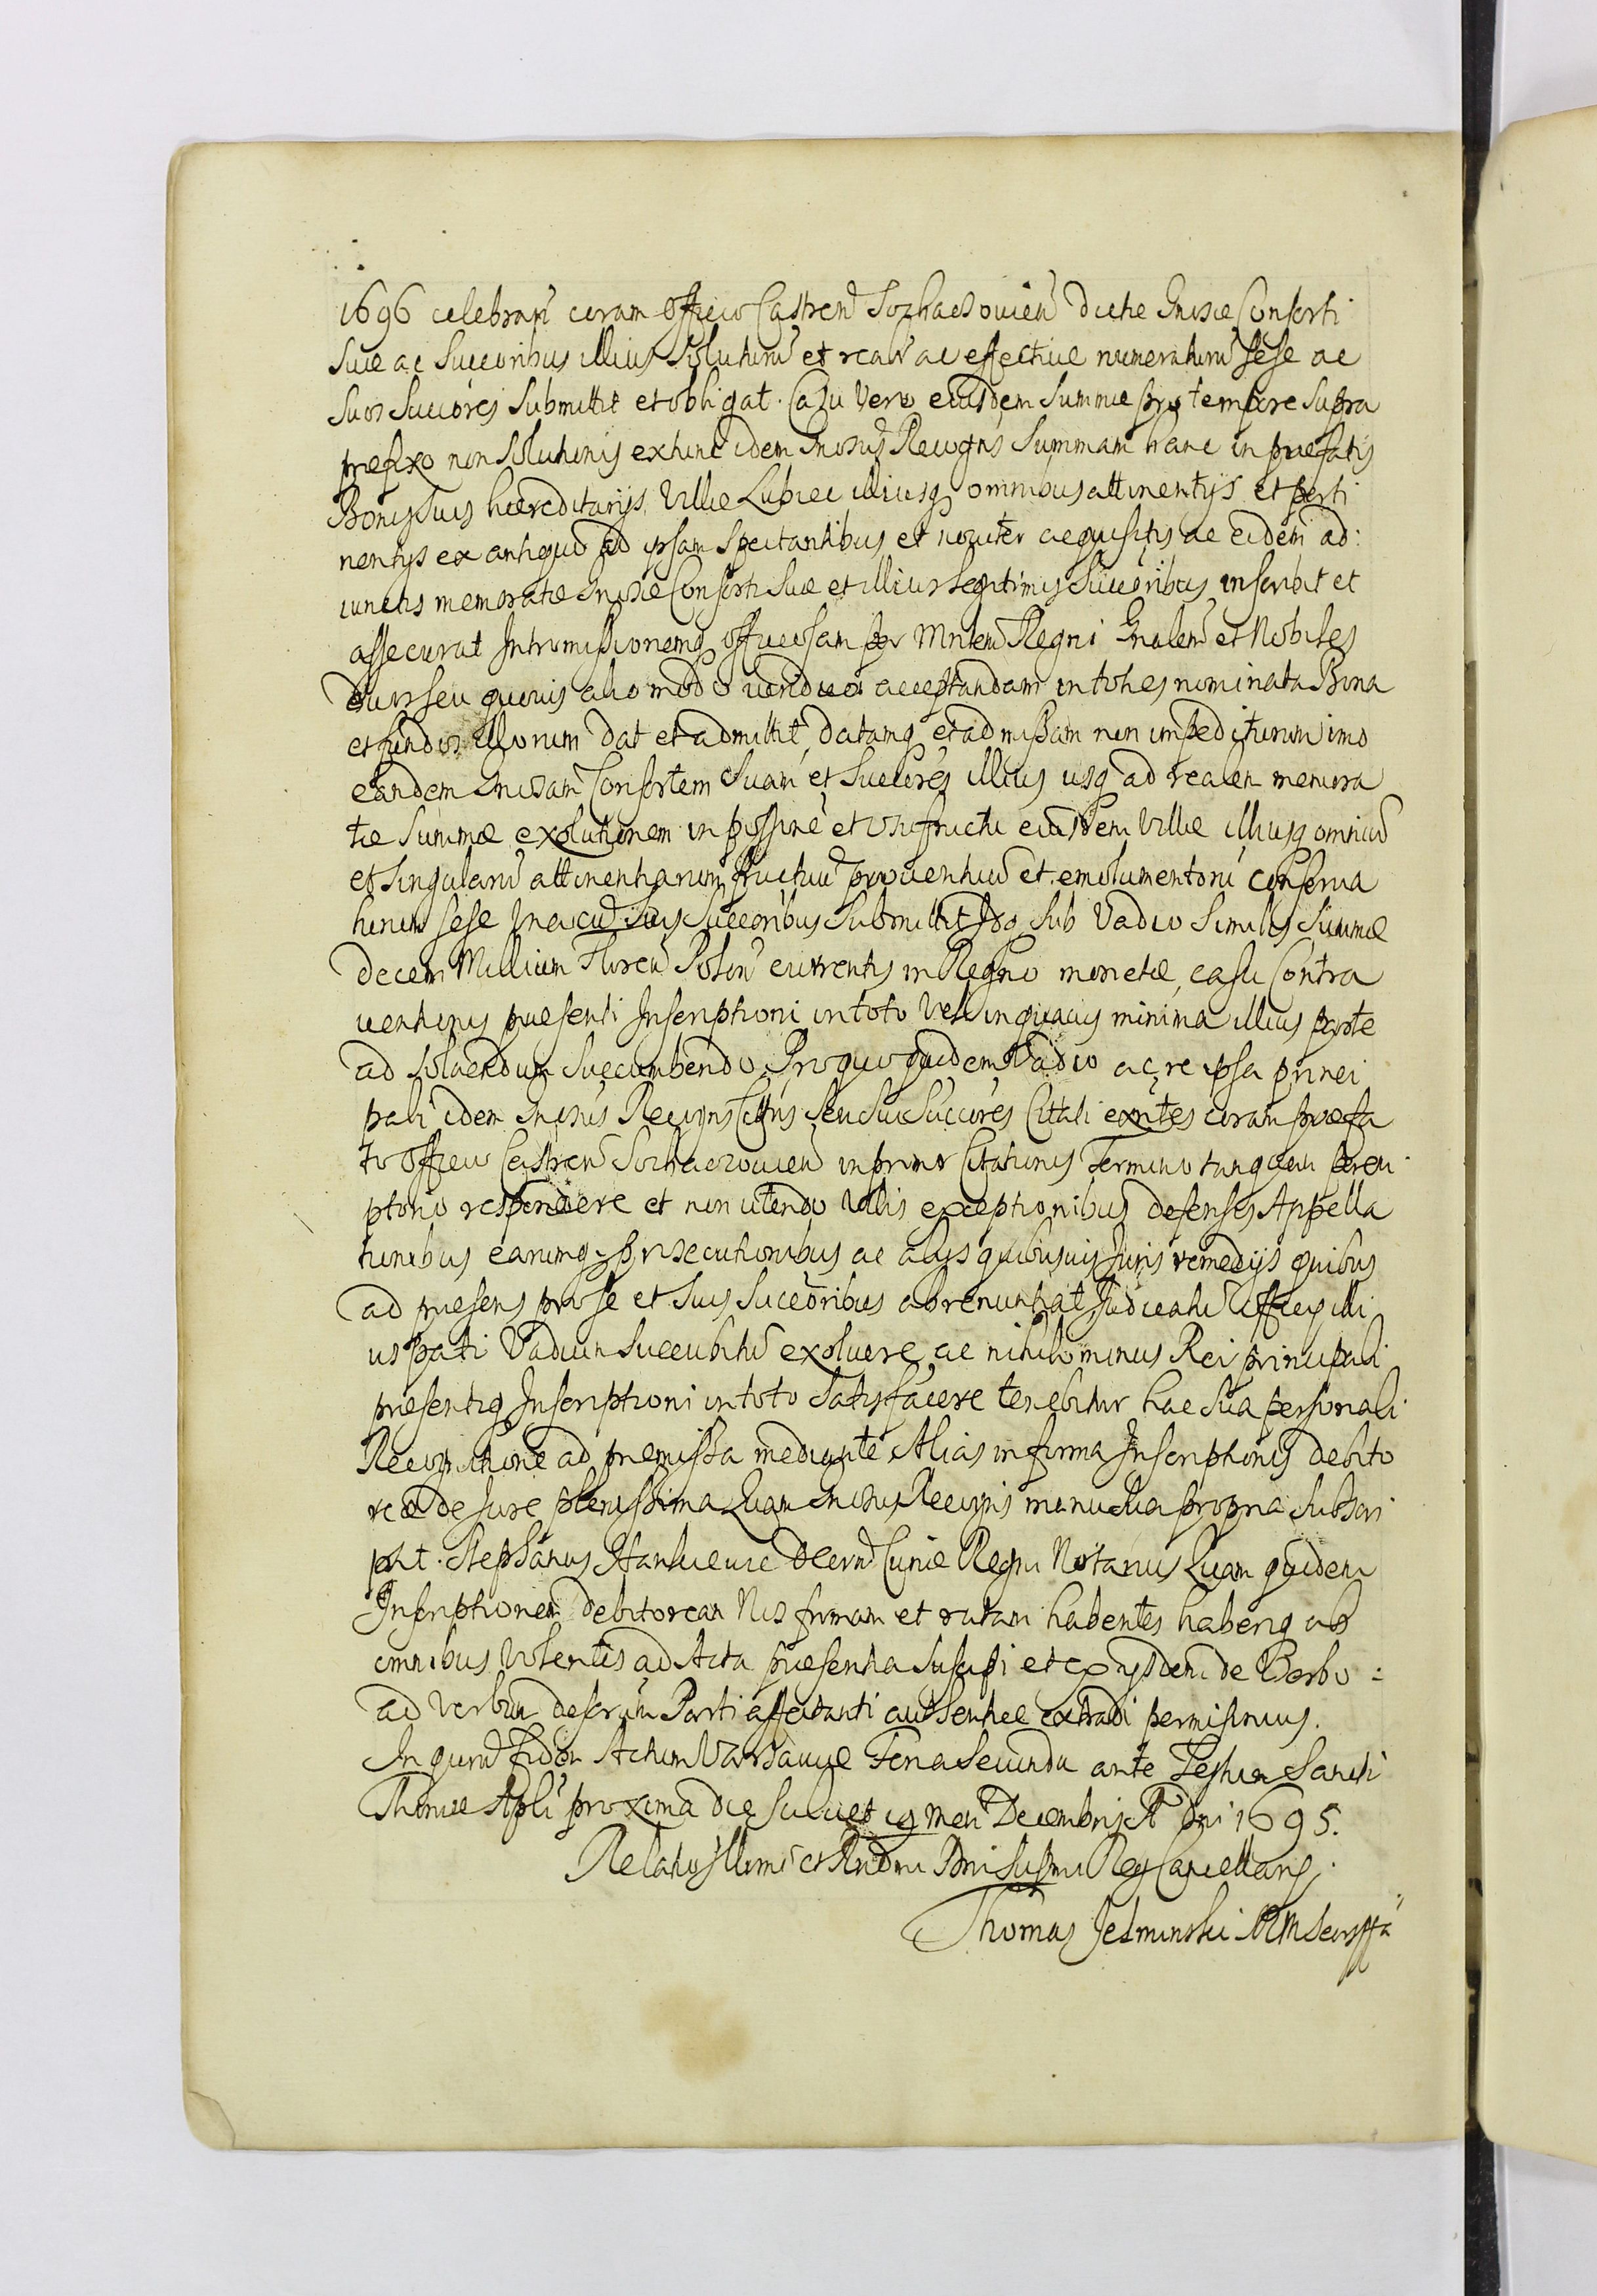 1696 celebran coram Officio Castren Sochaczovien dictae Gnosae Consorti
suae ac Succoribus illius soluturum et realr ac effective numeraturum sese ac
suos Succores submittit et obligat. Casu vero eiusdem summae pro tempore supra
praefixo non solutionis extunc idem Gnosus Recogns summam hanc in praefatis
Bonis suis haereditarijs Villae Lubiec illiusq omnibus attinentijs et perti
nentijs ex antiquo ad ipsam spectantibus et noviter acquisitis ac eidem ad:
iunctis memoratae Gnosae Consorti suae et illius legitimis Succoribus inscribit et
assecurat Intromissionemq officiosam per Mnlem Regni Gnalem et Nobiles
duos seu quovis alio modo acceptandam in toties nominata Bona
et fundos illorum dat et admittit, datamq et admissam non impediturum imo
eandem Gnosam Consortem suam et Succores illius usq ad realem memora
tae summae exolutionem in possione et usufructu eiusdem Villae illiusq omniu
et singularu attinentiarum fructuu proventuu et emolumentoru conserva
turum sese una cu suis Succoribus submittit Idq sub Vadio similis summae
decem Millium Floren Polon currentis in Regno monetae, casu Contra
ventionis praesenti Inscriptioni in toto vel in quavis minima illius parte
ad solvendum succumbendo Pro quo quidem Vadio ac re ipsa princi
pali idem Gnosus Recogns Cittus seu sui Succores Citati exntes coram praefa
to Officio Castren Sochaczovien in primo Citationis Termino tanquam perem
ptorio respondere et non utendo ullis exceptionibus defensis Appella
tionibus earumq prosecutionibus ac alijs quibusvis Juris remedijs quibus
ad praesens pro se et suis Succoribus abrenuntiat Judicatu Officij illi
us pati Vadium succubitu exolvere ac nihilominus Rei principali
praesentiq Inscriptioni in toto satisfacere tenebitur hac sua personali
Recognitione ad praemissa mediante Alias in forma Inscriptionis debito
reae de Jure plenissima Quam Gnosus Recogns manu sua propria subscri
psit. Stephanus Hankiewic Decrm Curiae Regni Notarius Quam quidem
Inscriptionem debitoream Nos firmam et ratam habentes haberiq ab
omnibus volentes ad Acta praesentia suscipi et ex ijsdem de Verbo =
ad verbum descriptum Parti affectanti authentice extradi permisimus.
In quoru fidem Actum Varsaviae Feria Secunda ante Festum Sancti
Thomae Apli proxima die scilicet 19 men Decembris A Dni 1695.
Relatio Illmi et Rndmi Dni supmi Reg Cancellarij.
Thomas Jelminski